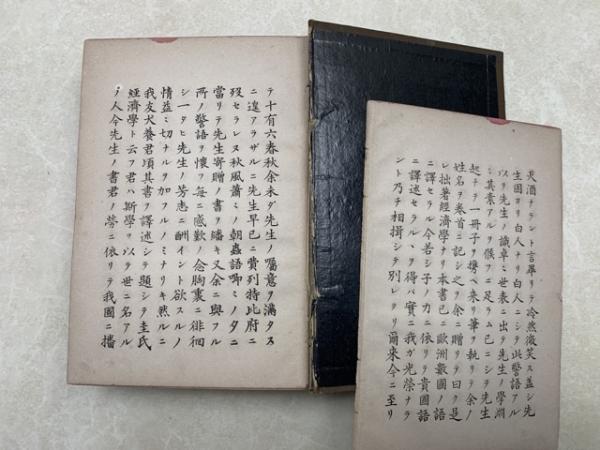 チラント言畢リテ冷然微笑ス蓋シ先
生固ヨリ白人ナリ白人ニシテ此警語アル
以テ先生ノ識卓ミ世表ニ出テ先生ノ學淵
シ其素アルヲ候フニ足ラム已ニシテ先生
起チテ一冊子ヲ携ヘ來リ筆ヲ執リテ余ノ
姓名ヲ卷首ニ記シ之ヲ余ニ贈リテ曰ク是
レ拙著經濟學ナリ本書已ニ歐洲數國ノ語
ニ譯セラル今若シ子ノ力ニ依リテ貴國語
ニ譯述セラルヽヲ得バ實ニ我ガ光榮ナラ
ント乃チ相揖シテ別レタリ爾來今ニ至リ
テ十有六春秋余未ダ先生ノ囑意ヲ滿タス
ニ遑アラザルニ先生早已ニ費列特比府ニ
歿セラレヌ秋風蕭ミノ朝蟲語喞ミノ夕ニ
當リテ先生寄贈ノ書ヲ繙キ又余ニ與フル
所ノ警語ヲ懷フ毎ニ感歎ノ念胸裏ニ徘徊
シ一タヒ先生ノ芳志ニ酬イント欲スルノ
情益ミ切ナルヲ加フルノミナリキ然ルニ
我友犬養君頃其書ヲ譯述シテ題シテ圭氏
經濟學ト云フ君ハ斯學ヲ以テ世ニ名アル
ノ人今先生ノ書君ノ勞ニ依リテ我國ニ播